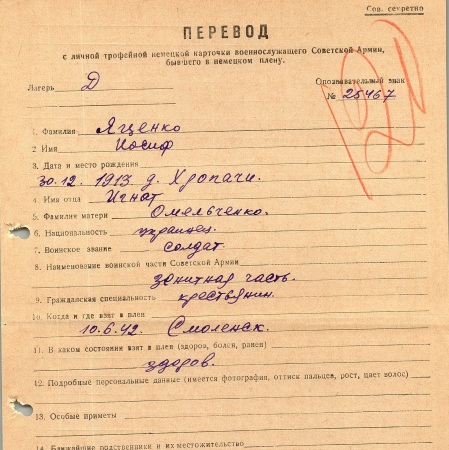 Сов. секретно
ПЕРЕВОД
с личной трофейной немецкой карточки военнослужащего Советской Армии,
бывшего в немецком плену.
Лагерь Д
Опознавательный знак
№ 25467
1. Фамилия Яценко
2 Имя Иосиф
3. Дата и место рождения
30.12. 1913 д. Хропачи.
4. Имя отца Игнат
5. Фамилия матери Омельченко.
6. Национальность украинец.
7. Воинское звание солдат.
8. Наименование воинской части Советской Армии
зенитная часть.
9. Гражданская специальность крестьянин.
10. Когда и где взят в плен
10.6.42. Смоленск.
11. В каком состоянии взят в плен (здоров, болен, ранен)
здоров.
12. Подробные персональные данные (имеется фотография, оттиск пальцев, рост, цвет волос)
13. Особые приметы
14. Ближайшие родственники и их местожительство